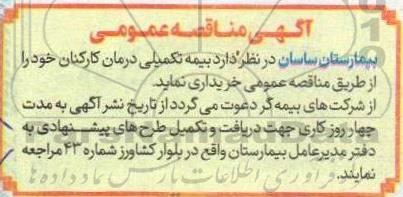 آگهی مناقصه عمومی
بیمارستان ساسان در نظر دارد بیمه تکمیلی درمان کارکنان خود را
از طریق مناقصه عمومی خریداری نماید.
از شرکت های بیمه گر دعوت می گردد از تاریخ نشر آگهی به مدت
چهار روز کاری جهت دریافت و تکمیل طرح های پیشنهادی به
دفتر مدیرعامل بیمارستان واقع در بلوار کشاورز شماره ۴۳ مراجعه
نمایند.
فرآوری اطلاعات پارس نماد داده ها